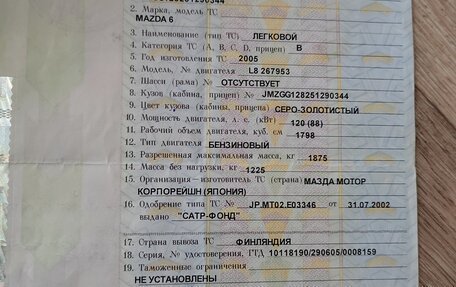 2. Марка, модель ТС
MAZDA 6
3. Наименование (тип ТС) ЛЕГКОВОЙ
4. Категория ТС (А, В, С, D, прицеп) B
5. Год изготовления ТС 2005
6. Модель, № двигателя L8 267953
7. Шасси (рама) № ОТСУТСТВУЕТ
8. Кузов (кабина, прицеп) № JMZGG128251290344
9. Цвет кузова (кабины, прицепа) СЕРО-ЗОЛОТИСТЫЙ
10. Мощность двигателя, л. с. (кВт) 120 (88)
11. Рабочий объем двигателя, куб. см 1798
12. Тип двигателя БЕНЗИНОВЫЙ
13. Разрешенная максимальная масса, кг 1875
14. Масса без нагрузки, кг 1225
15. Организация—изготовитель ТС (страна) МАЗДА МОТОР
КОРПОРЕЙШН (ЯПОНИЯ)
16. Одобрение типа ТС № JP.MT02.E03346 от 31.07.2002
выдано "САТР-ФОНД"
17. Страна вывоза ТС ФИНЛЯНДИЯ
18. Серия, № удостоверения, ГТД 10118190/290605/0008159
19. Таможенные ограничения
НЕ УСТАНОВЛЕНЫ